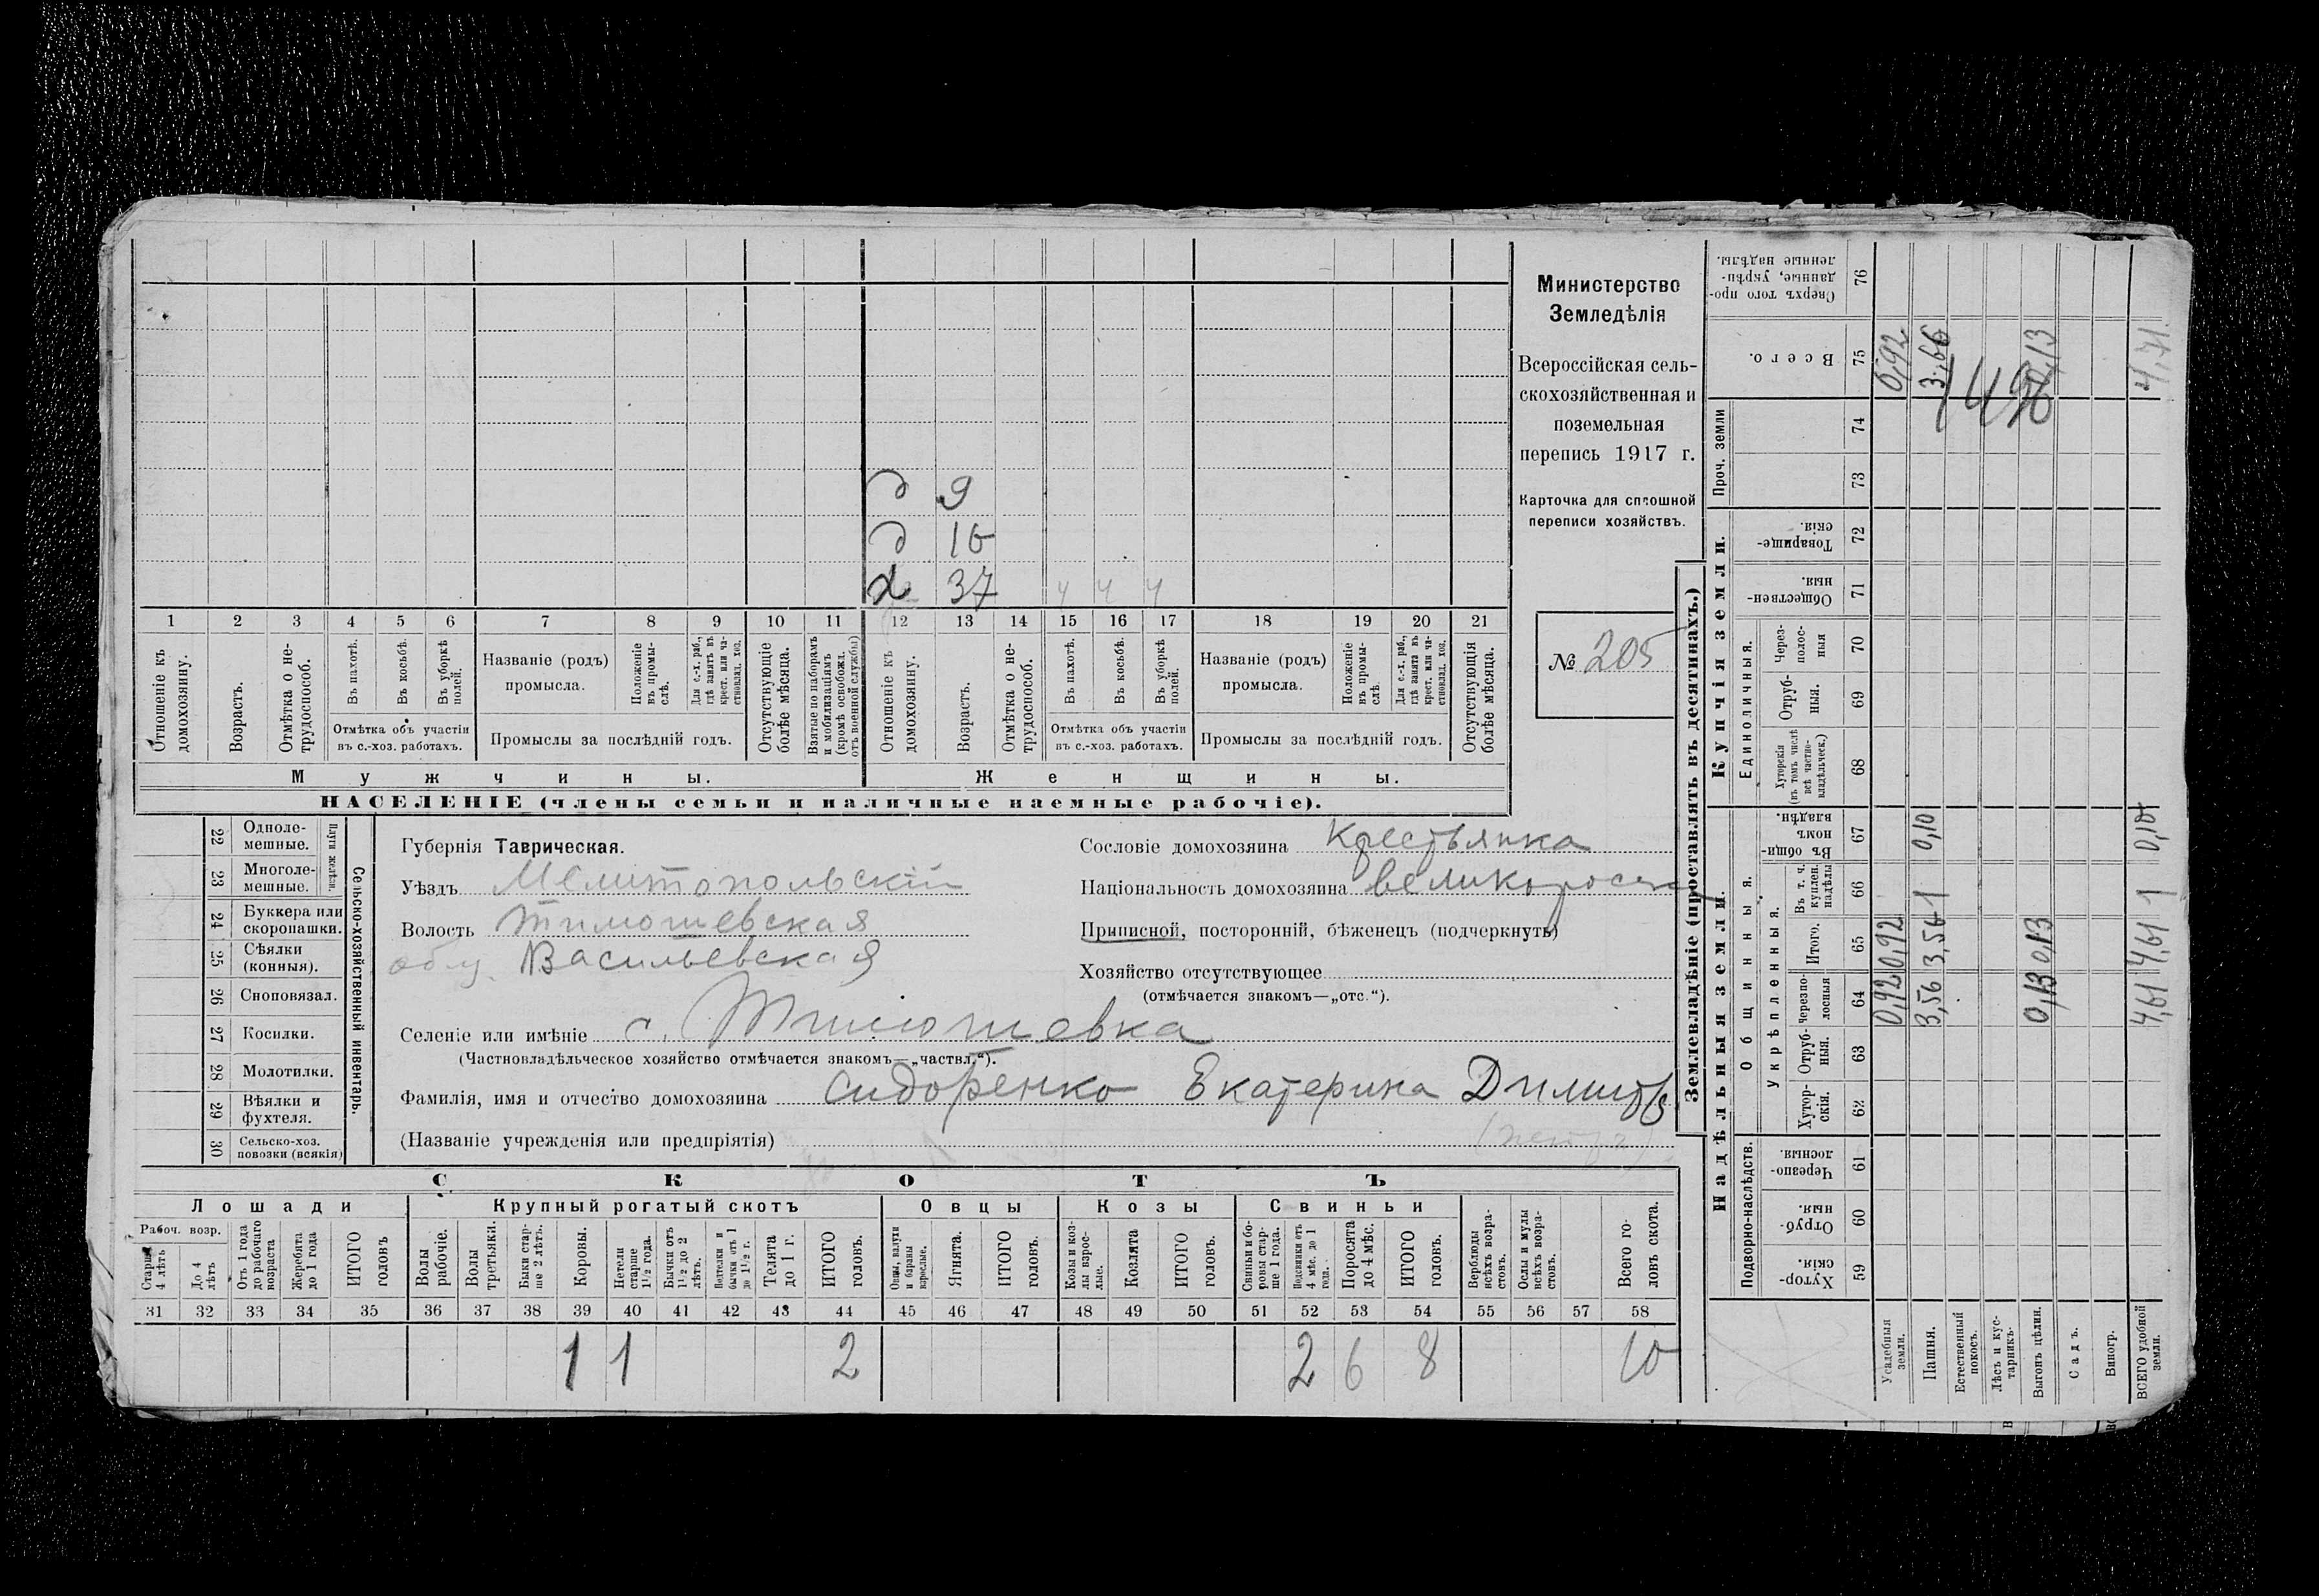 Министерство
Земледѣлія
Всероссійская сель-
скохозяйственная и
поземельная
перепись 1917 г.
Карточка для сплошной
переписи хозяйствъ.
№ 205
д 9
д 16
х 37 ч ч ч
1 2 3 4 5 6 7 8 9 10 11 12 13 14 15 16 17 18 19 20 21
Отношеніе къ домохозяину.
Возрастъ.
Отмѣтка о не-трудоспособ.
Въ пахотѣ.
Въ косьбѣ.
Въ уборкѣ полей.
Отмѣтка объ участіи въ с.-хоз. работахъ.
Названіе (родъ) промысла.
Положеніе въ промы-слѣ.
Для с.-х. раб., гдѣ занятъ въ крест. или ча-стновлад. хоз.
Промыслы за послѣдній годъ.
Отсутствующіе болѣе мѣсяца.
Взятые по наборамъ и мобилизаціямъ (кромѣ освобожд. отъ военной службы)
Отношеніе къ домохозяину.
Возрастъ.
Отмѣтка о не-трудоспособ.
Въ пахотѣ.
Въ косьбѣ.
Въ уборкѣ полей.
Отмѣтка объ участіи въ с.-хоз. работахъ.
Названіе (родъ) промысла.
Положеніе въ промы-слѣ.
Для с.-х. раб., гдѣ занята въ крест. или ча-стновлад. хоз.
Промыслы за послѣдній годъ.
Отсутствующія болѣе мѣсяца.
Мужчины. Женщины.
НАСЕЛЕНІЕ (члены семьи и наличные наемные рабочіе).
22 Одноле-мешные.
23 Многоле-мешные.
Плуги желѣзн.
24 Буккера или скоропашки.
25 Сѣялки (конныя).
26 Сноповязал.
27 Косилки.
28 Молотилки.
29 Вѣялки и фухтеля.
30 Сельско-хоз. повозки (всякія)
Сельско-хозяйственный инвентарь.
Губернія Таврическая.
Уѣздъ Мелитопольскій
Волость Тимошевская
общ. Васильевская
Сословіе домохозяина Крестьянка
Національность домохозяина великоросск
Приписной, посторонній, бѣженецъ (подчеркнуть)
Хозяйство отсутствующее
(отмѣчается знакомъ—„отс.“).
Селеніе или имѣніе с. Тимошевка
(Частновладѣльческое хозяйство отмѣчается знакомъ—„частвл.“).
Фамилія, имя и отчество домохозяина Сидоренко Екатерина Димитр
(Названіе учрежденія или предпріятія)
СКОТЪ
Лошади Крупный рогатый скотъ Овцы Козы Свиньи
Рабоч. возр.
Старше 4 лѣтъ
До 4 лѣтъ
Отъ 1 года до рабочаго возраста
Жеребята до 1 года
ИТОГО головъ
Волы рабочіе.
Волы третьяки.
Быки стар-ше 2 лѣтъ.
Коровы.
Нетели старше 1½ года.
Бычки отъ 1½ до 2 лѣтъ.
Нетелки и бычки отъ 1 до 1½ г.
Телята до 1 г.
ИТОГО головъ.
Овцы, валухи и бараны взрослые.
Ягнята.
ИТОГО головъ.
Козы и коз-лы взрос-лые.
Козлята
ИТОГО головъ.
Свиньи и бо-ровы стар-ше 1 года.
Подсвинки отъ 4 мѣс. до 1 года.
Поросята до 4 мѣс.
ИТОГО головъ.
Верблюды всѣхъ возра-стовъ.
Ослы и мулы всѣхъ возра-стовъ.
Всего го-ловъ скота.
31 32 33 34 35 36 37 38 39 40 41 42 43 44 45 46 47 48 49 50 51 52 53 54 55 56 57 58
1 1 2 2 6 8 10
Землевладѣніе (проставлять въ десятинахъ.)
Надѣльныя земли. Купчія земли. Проч. земли
Подворно-наслѣдств. Общинныя. Единоличныя.
Укрѣпленныя.
Хутор-скія. 59
Отруб-ныя. 60
Черезпо-лосныя. 61
Хутор-скія. 62
Отруб-ныя. 63
Черезпо-лосныя 64
Итого. 65
Въ т. ч. куплен. надѣлы 66
Въ общи-номъ владѣн. 67
Хуторскія (въ томъ числѣ всѣ частно-владѣльческ.) 68
Отруб-ныя. 69
Через-полос-ныя 70
Обществен-ныя. 71
Товарище-скія. 72
73
74
Всего. 75
Сверхъ того про-данные, укрѣп-ленные надѣлы. 76
Усадебныя земли. 0,92 0,92 0,92
Пашня. 3,56 3,56 0,10 3,66
Естественный покосъ.
Лѣсъ и кус-тарникъ.
Выгонъ цѣлин. 0,13 0,13 0,13
Садъ.
Виногр.
ВСЕГО удобной земли. 4,61 4,61 0,10 4,71.